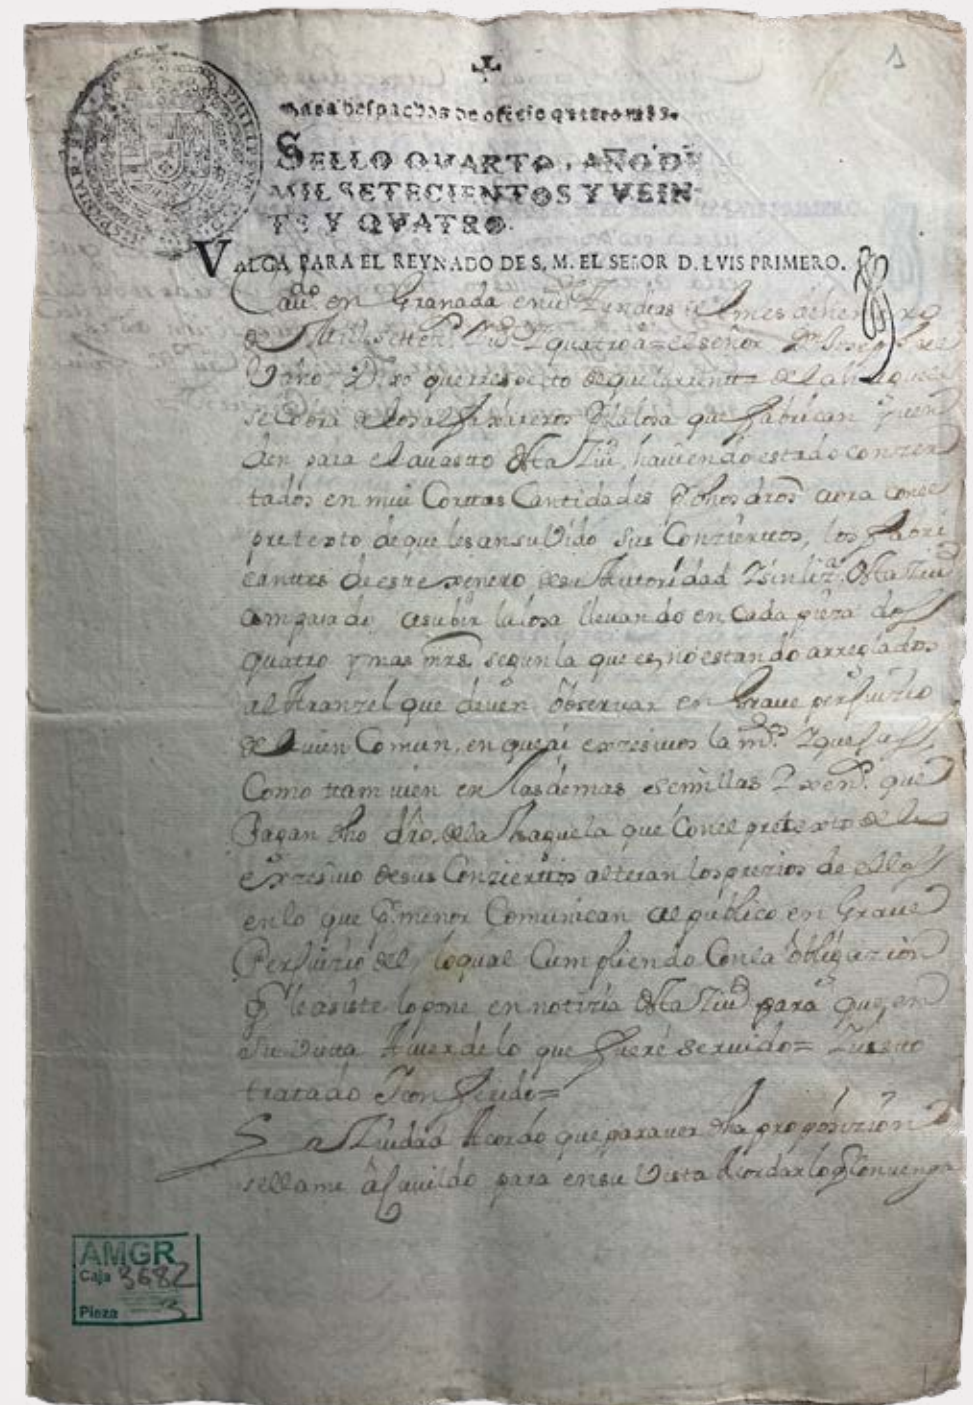 1
Para despachos de oficio quatro mrs.
SELLO QVARTO, AÑO DE
MIL SETECIENTOS Y VEIN-
TE Y QVATRO.
VALGA PARA EL REYNADO DE S. M. EL SEÑOR D. LVIS PRIMERO.
Cavdo. en Granada en
de Mill settez. y quatro a = el señor Dn. Joseph
Dixo que respecto de que la renta de la haguela
se cobra de los Alfahareros de la losa que fabrican y ven
den para el auasto desta Ziud. hauiendo estado conzer
tados en mui Cortas Cantidades por dhos dros aora con el
pretexto de que les an subido sus Conziertos, los fabri
cantes de este xenero, de su Autoridad y sin liza. desta Ziud
an pasado a subir la losa lleuando en cada pieza dos
quatro y mas mrs. segun la que es, no estando arreglados
al Aranzel que deuen obseruar en Graue perjuizio
de Vien Comun, en que ai exzesiuos
Como tamuien en las demas semillas y xens. que
Pagan dho dro. de la haguela que con el pretexto de lo
exzesiuo de sus Conziertos alteran los prezios de ellos
en lo que por menor Comunican al publico en Graue
Perjuizio del lo qual Cumpliendo Con la obligazion
que le asiste lo pone en notizia desta Ziud. para que en
su vista Acuerde lo que fuere seruido = Y visto
tratado y conferido =
La Ziudad Acordo que para ver dha proposizion
se llame a Cauildo para en su vista Acordar lo que Conuenga
AMGR
Caja 3682
Pieza 3